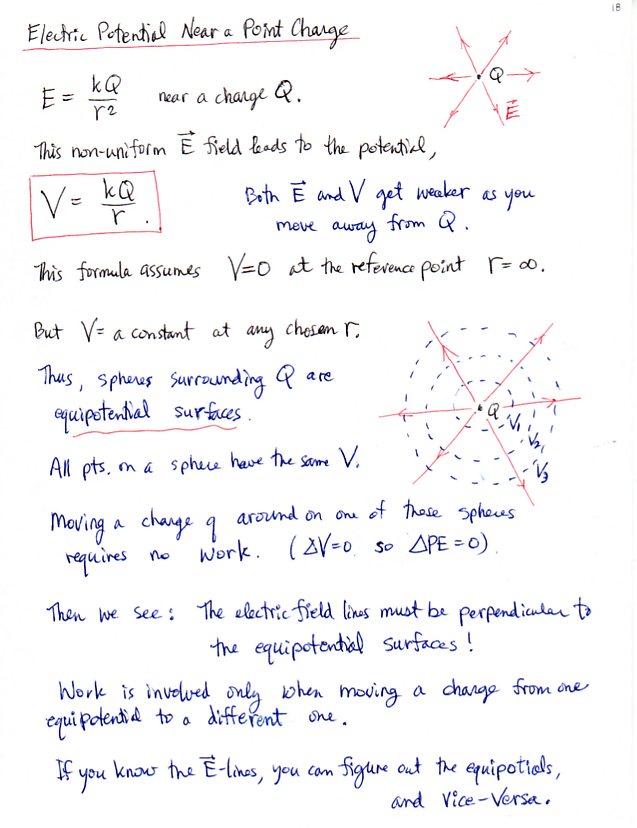 18
Electric Potential Near a Point Charge
Q
E = kQ/r² near a charge Q.
E⃗
This non-uniform E⃗ field leads to the potential,
V = kQ/r.
Both E⃗ and V get weaker as you
move away from Q.
This formula assumes V=0 at the reference point r = ∞.
But V= a constant at any chosen r.
Thus, spheres surrounding Q are
equipotential surfaces.
Q
V₁
V₂
V₃
All pts. on a sphere have the same V.
Moving a charge q around on one of these spheres
requires no work. (ΔV=0 so ΔPE=0).
Then we see: The electric field lines must be perpendicular to
the equipotential surfaces!
Work is involved only when moving a charge from one
equipotential to a different one.
If you know the E⃗-lines, you can figure out the equipotials,
and vice-versa.